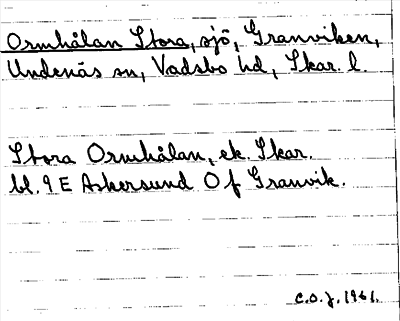 Ormhålan Stora, sjö, Granviken,
Undenäs sn, Vadsbo hd, Skar. l.
Stora Ormhålan, ek. Skar.
bl. 9 E Askersund O f Granvik.
C.O.J. 1961.